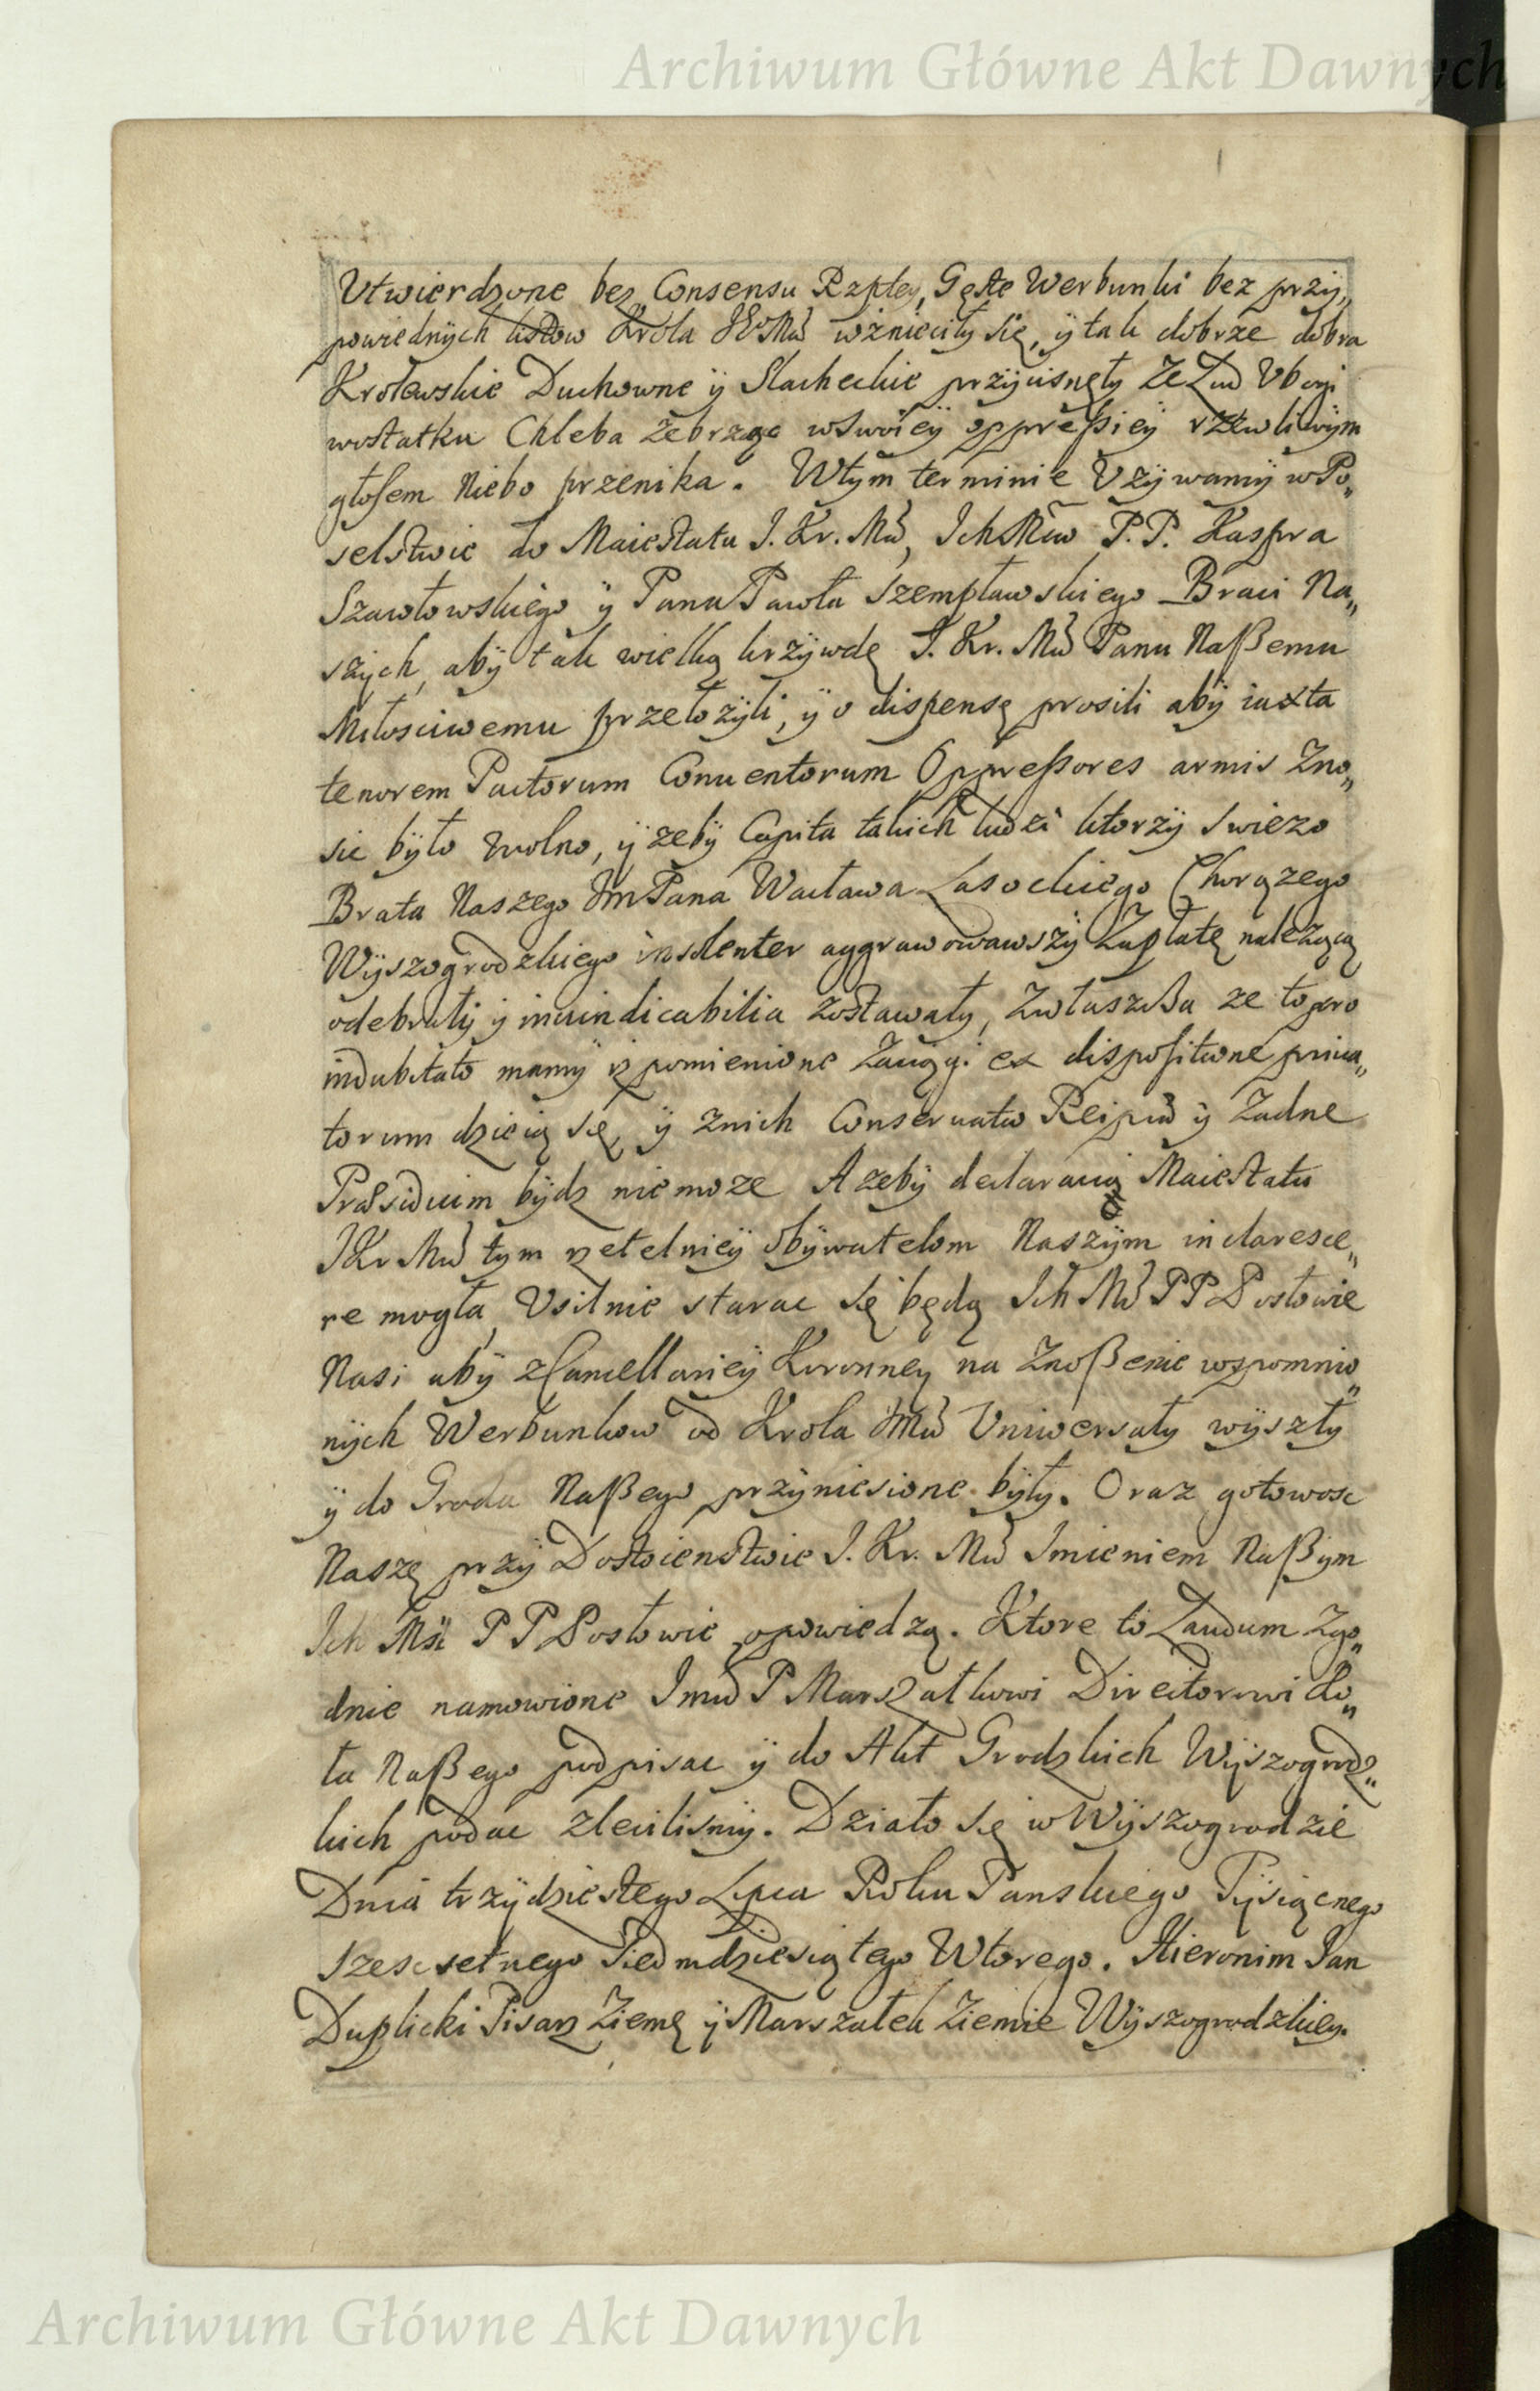 Archiwum Główne Akt Dawnych
Utwierdzone bez Consensu Rzpley, Gęste Werbunki bez przÿ„
powiednÿch listow Krola JEoMśi wznieciły się, ÿ tak dobrze dobra
Krolewskie Duchowne ÿ Slacheckie przÿcisnęły ze Lud Ubogi
wostatku Chleba żebrząc wswoieÿ oppreßieÿ rzewliwÿm
głosem Niebo przenika. Wtÿm terminie Uzÿwamÿ w Po„
selstwie do Maiestatu J. Kr. Mśi, IchMśiow P. P. Kaspra
Szawłowskiego ÿ Pana Pawła Szempławskiego Braci Na„
szÿch, abÿ tak wielką krzÿwdę J. Kr. Mśi Panu Naßemu
Miłosciwemu przełożÿli, ÿ o dispensę prosili abÿ iuxta
tenorem Pactorum Conuentorum Oppreßores armis Zno„
sic bÿło wolno, ÿ zebÿ Capita takich ludzi ktorzÿ swiezo
Brata Naszego Jm Pana Wacława Lasockiego Chorązego
Wÿszogrodzkiego insolenter aggrawowawszÿ Zapłatę należącą
odebrałÿ ÿ inuindicabilia zostawałÿ, Zwłaszcza ze to pro
indubitato mamÿ iz pomienione Zaciągi ex dispositione priua„
torum dzieią się, ÿ znich Conseruatio Reipub ÿ Zadne
Præsidium bÿdz niemoze A zebÿ declaracia Maiestatu
JKr Mśi tym rzetelnieÿ Obÿwatelom Naszÿm inclaresce„
re mogła, Usilnie starac się będą Ich Mśi PP Posłowie
Nasi abÿ z Cancellarieÿ Koronney na Znoßenie wspomnio„
nÿch Werbunkow od Krola JMśi Uniwersały wÿszły
ÿ do Grodu Naßego przÿniesione bÿłÿ. Oraz gotowosc
Naszę przÿ Dostoienstwie J. Kr. Mśi Imieniem Naßÿm
Ich Mśc P P Posłowie opowiedzą. Ktore to Laudum Zgo„
dnie namowione Jmśi P Marszałkowi Directorowi Ko„
ła Naßego podpisac ÿ do Akt Grodzkich Wÿszogrodz„
kich podac zlecilismÿ. Działo się w Wÿszogrodzie
Dnia trzÿdziestego Lipca Roku Panskiego Tÿsiącnego
Szescsetnego Siedmdziesiątego Wtorego. Hieronim Jan
Duplicki Pisarz Ziemę ÿ Marszałek Ziemie Wÿszogrodzkiey.
Archiwum Główne Akt Dawnych